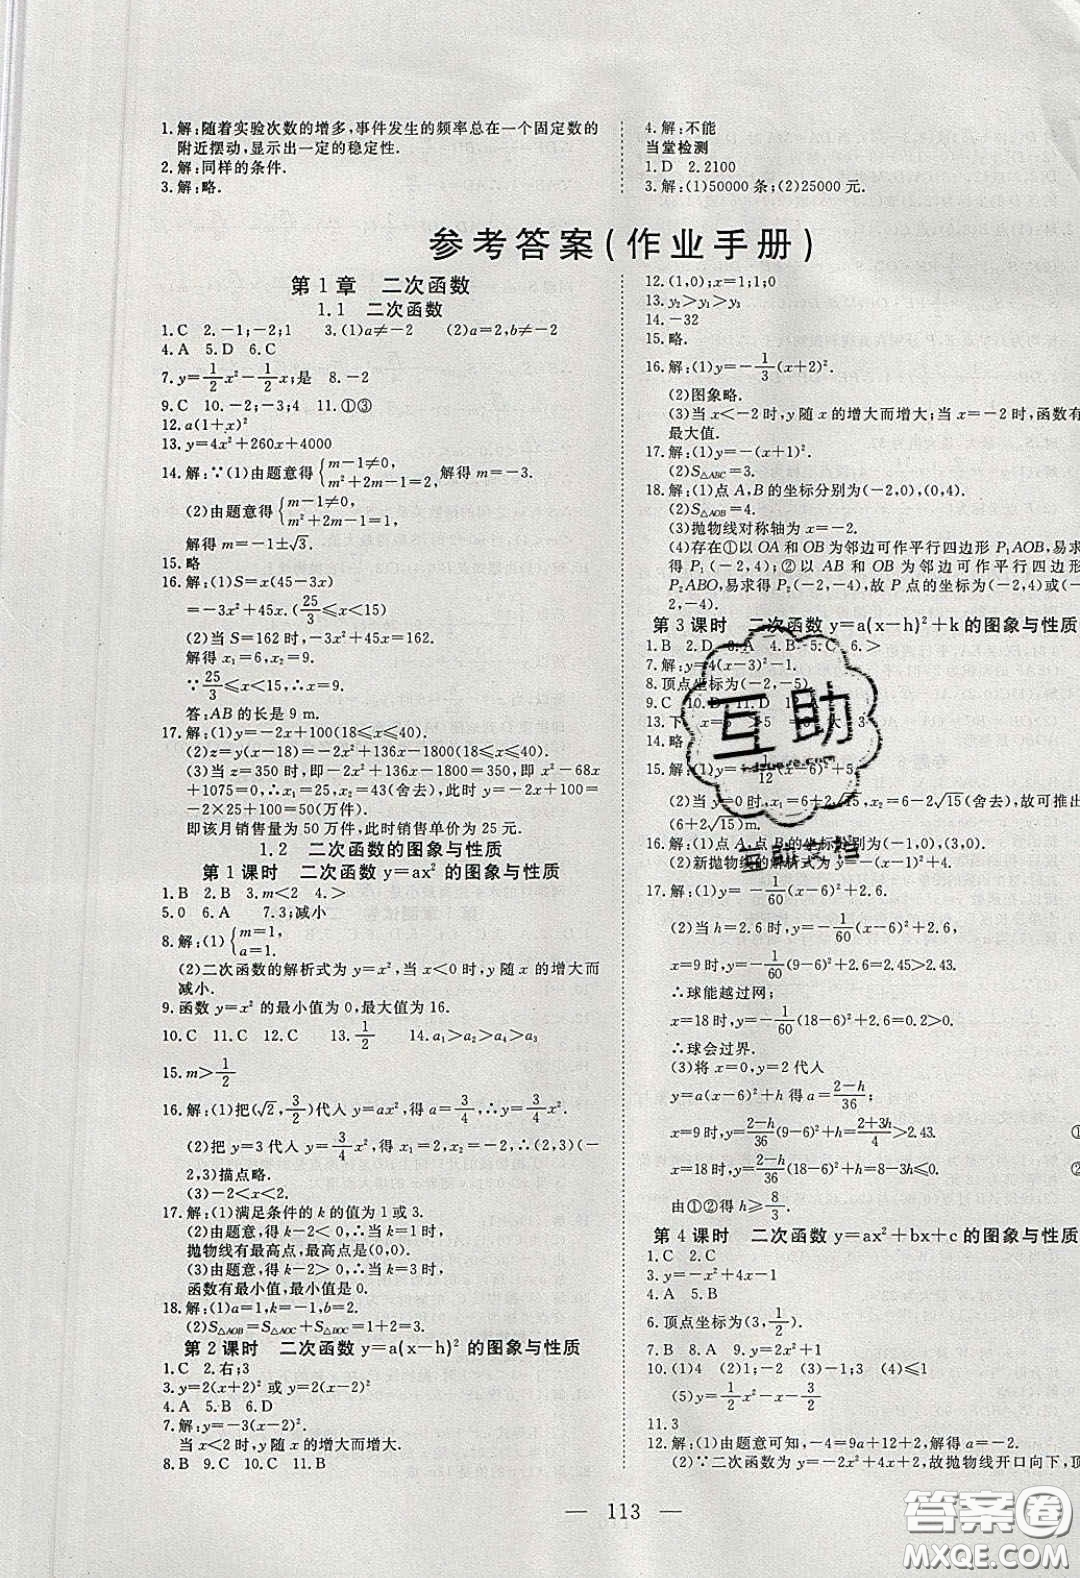 1.解:随着实验次数的增多,事件发生的频率总在一个固定数的
附近摆动,显示出一定的稳定性.
2.解:同样的条件.
3.解:略.
4.解:不能
当堂检测
1.D 2.2100
3.解:(1)50000 条;(2)25000 元.
参考答案(作业手册)
第1章 二次函数
1.1 二次函数
1.C 2.-1;-2;1 3.(1)a≠-2 (2)a=2,b≠-2
4.A 5.D 6.C
7.y=1/2x²-1/2x;是 8.-2
9.C 10.-2;-3;4 11.①③
12.a(1+x)²
13.y=4x²+260x+4000
14.解:∵(1)由题意得{m-1≠0, m²+2m-1=2, 解得 m=-3.
(2)由题意得{m-1=0, m²+2m-1=1.
解得 m=-1±√3.
15.略
16.解:(1)S=x(45-3x)
=-3x²+45x.(25/3≤x<15)
(2)当 S=162 时,-3x²+45x=162.
解得 x₁=6,x₂=9.
∵25/3≤x<15,∴x=9.
答:AB 的长是 9 m.
17.解:(1)y=-2x+100(18≤x≤40).
(2)z=y(x-18)=-2x²+136x-1800(18≤x≤40)
(3)当 z=350 时,即-2x²+136x-1800=350,即 x²-68x
+1075=0,∴x₁=25,x₂=43(舍去),此时 y=-2x+100=
-2×25+100=50(万件).
即该月销售量为 50 万件,此时销售单价为 25 元.
1.2 二次函数的图象与性质
第1课时 二次函数 y=ax² 的图象与性质
1.B 2.B 3.m<2 4.>
5.0 6.A 7.3;减小
8.解:(1){m=1, a=1.
(2)二次函数的解析式为 y=x²,当 x<0 时,y 随 x 的增大而
减小.
9.函数 y=x² 的最小值为 0,最大值为 16.
10.C 11.C 12.C 13.1/2 14.a₁>a₂>a₄>a₃
15.m>1/2
16.解:(1)把(√2,3/2)代入 y=ax²,得 a=3/4,∴y=3/4x².
(2)把 y=3 代入 y=3/4x²,得 x₁=2,x₂=-2,∴(2,3)(-
2,3)描点略.
(3)-2<x<2.
17.解:(1)满足条件的 k 的值为 1 或 3.
(2)由题意,得 k-2<0,∴当 k=1 时,
抛物线有最高点,最高点为(0,0).
(3)由题意,得 k-2>0,∴当 k=3 时,
函数有最小值,最小值是 0.
18.解:(1)a=1,k=1,b=2.
(2)S△AOB=S△AOC+S△BOC=1+2=3.
第2课时 二次函数 y=a(x-h)² 的图象与性质
1.C 2.右;3
3.y=2(x+2)² 或 y=2(x-2)².
4.A 5.B 6.D
7.解:y=-3(x-2)².
当 x<2 时,y 随 x 的增大而增大.
8.B 9.C 10.D 11.B
12.(1,0);x=1;1;0
13.y₂>y₁>y₃
14.-32
15.略.
16.解:(1)y=-1/3(x+2)².
(2)图象略.
(3)当 x<-2 时,y 随 x 的增大而增大;当 x=-2 时,函数有
最大值.
17.解:(1)y=-(x+1)².
(2)S△ABC=3.
18.解:(1)点 A,B 的坐标分别为(-2,0),(0,4).
(2)S△AOB=4.
(3)抛物线对称轴为 x=-2.
(4)存在①以 OA 和 OB 为邻边可作平行四边形 P₁AOB,易求
得 P₁(-2,4);②以 AB 和 OB 为邻边可作平行四边形
P₂ABO,易求得 P₂(-2,-4),故 P 点的坐标为(-2,4)或(-
2,-4).
第3课时 二次函数 y=a(x-h)²+k 的图象与性质
1.B 2.D 3.A 4.B 5.C 6.>
7.解:y=4(x-3)²-1.
8.顶点坐标为(-2,-5).
9.C 10.D 11.D 12.A
13.下 x=5 >5 =5 大 3
14.略
15.解:(1)y=-1/12(x-6)²+5.
(2)当 y=0 时,x₁=6+2√15,x₂=6-2√15(舍去),故可推出
(6+2√15)m.
16.解:(1)点 A,点 B 的坐标分别为(-1,0),(3,0).
(2)新抛物线的解析式为 y=-(x-4)².
17.解:(1)y=-1/60(x-6)²+2.6.
(2)当 h=2.6 时,y=-1/60(x-6)²+2.6,
x=9 时,y=-1/60(9-6)²+2.6=2.45>2.43.
∴球能越过网;
x=18 时,y=-1/60(18-6)²+2.6=0.2>0.
∴球会过界.
(3)将 x=0,y=2 代入
y=a(x-6)²+h 得 a=2-h/36,
x=9 时,y=2-h/36(9-6)²+h=2+3h/4>2.43. ①
x=18 时,y=2-h/36(18-6)²+h=8-3h≤0.
由①②得 h≥8/3.
第4课时 二次函数 y=ax²+bx+c 的图象与性质
1.C 2.C
3.y=-x²+4x-1
4.A 5.B
6.顶点坐标为(3,1/2).
7.B 8.A 9.y=-x²-2x
10.(1)4 (2)1 (3)-1;3 (4)≤1
(5)y=1/2x²-x-3/2
11.3
12.解:(1)由题意可知,-4=9a+12+2,解得 a=-2.
(2)∵二次函数为 y=-2x²+4x+2,故抛物线开口向下,顶
互助
互助文档
113
答案圈
MXQE.COM